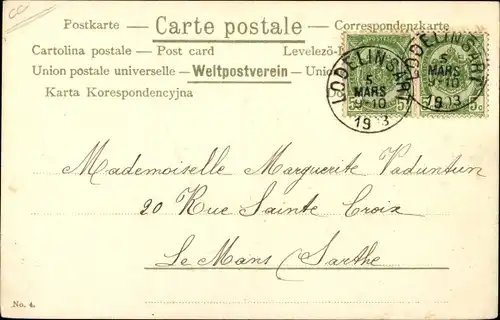 CC
Postkarte — Carte postale — Correspondenzkarte
Cartolina postale — Post card Levelező-
Union postale universelle — Weltpostverein — Union
Karta Korespondencyjna
LODELINSART
5
MARS
9-10
1903
LODELINSART
5
MARS
10
1903
Mademoiselle Marguerite Vaduntun
20 Rue Sainte Croix
Le Mans / Sarthe
No. 4.